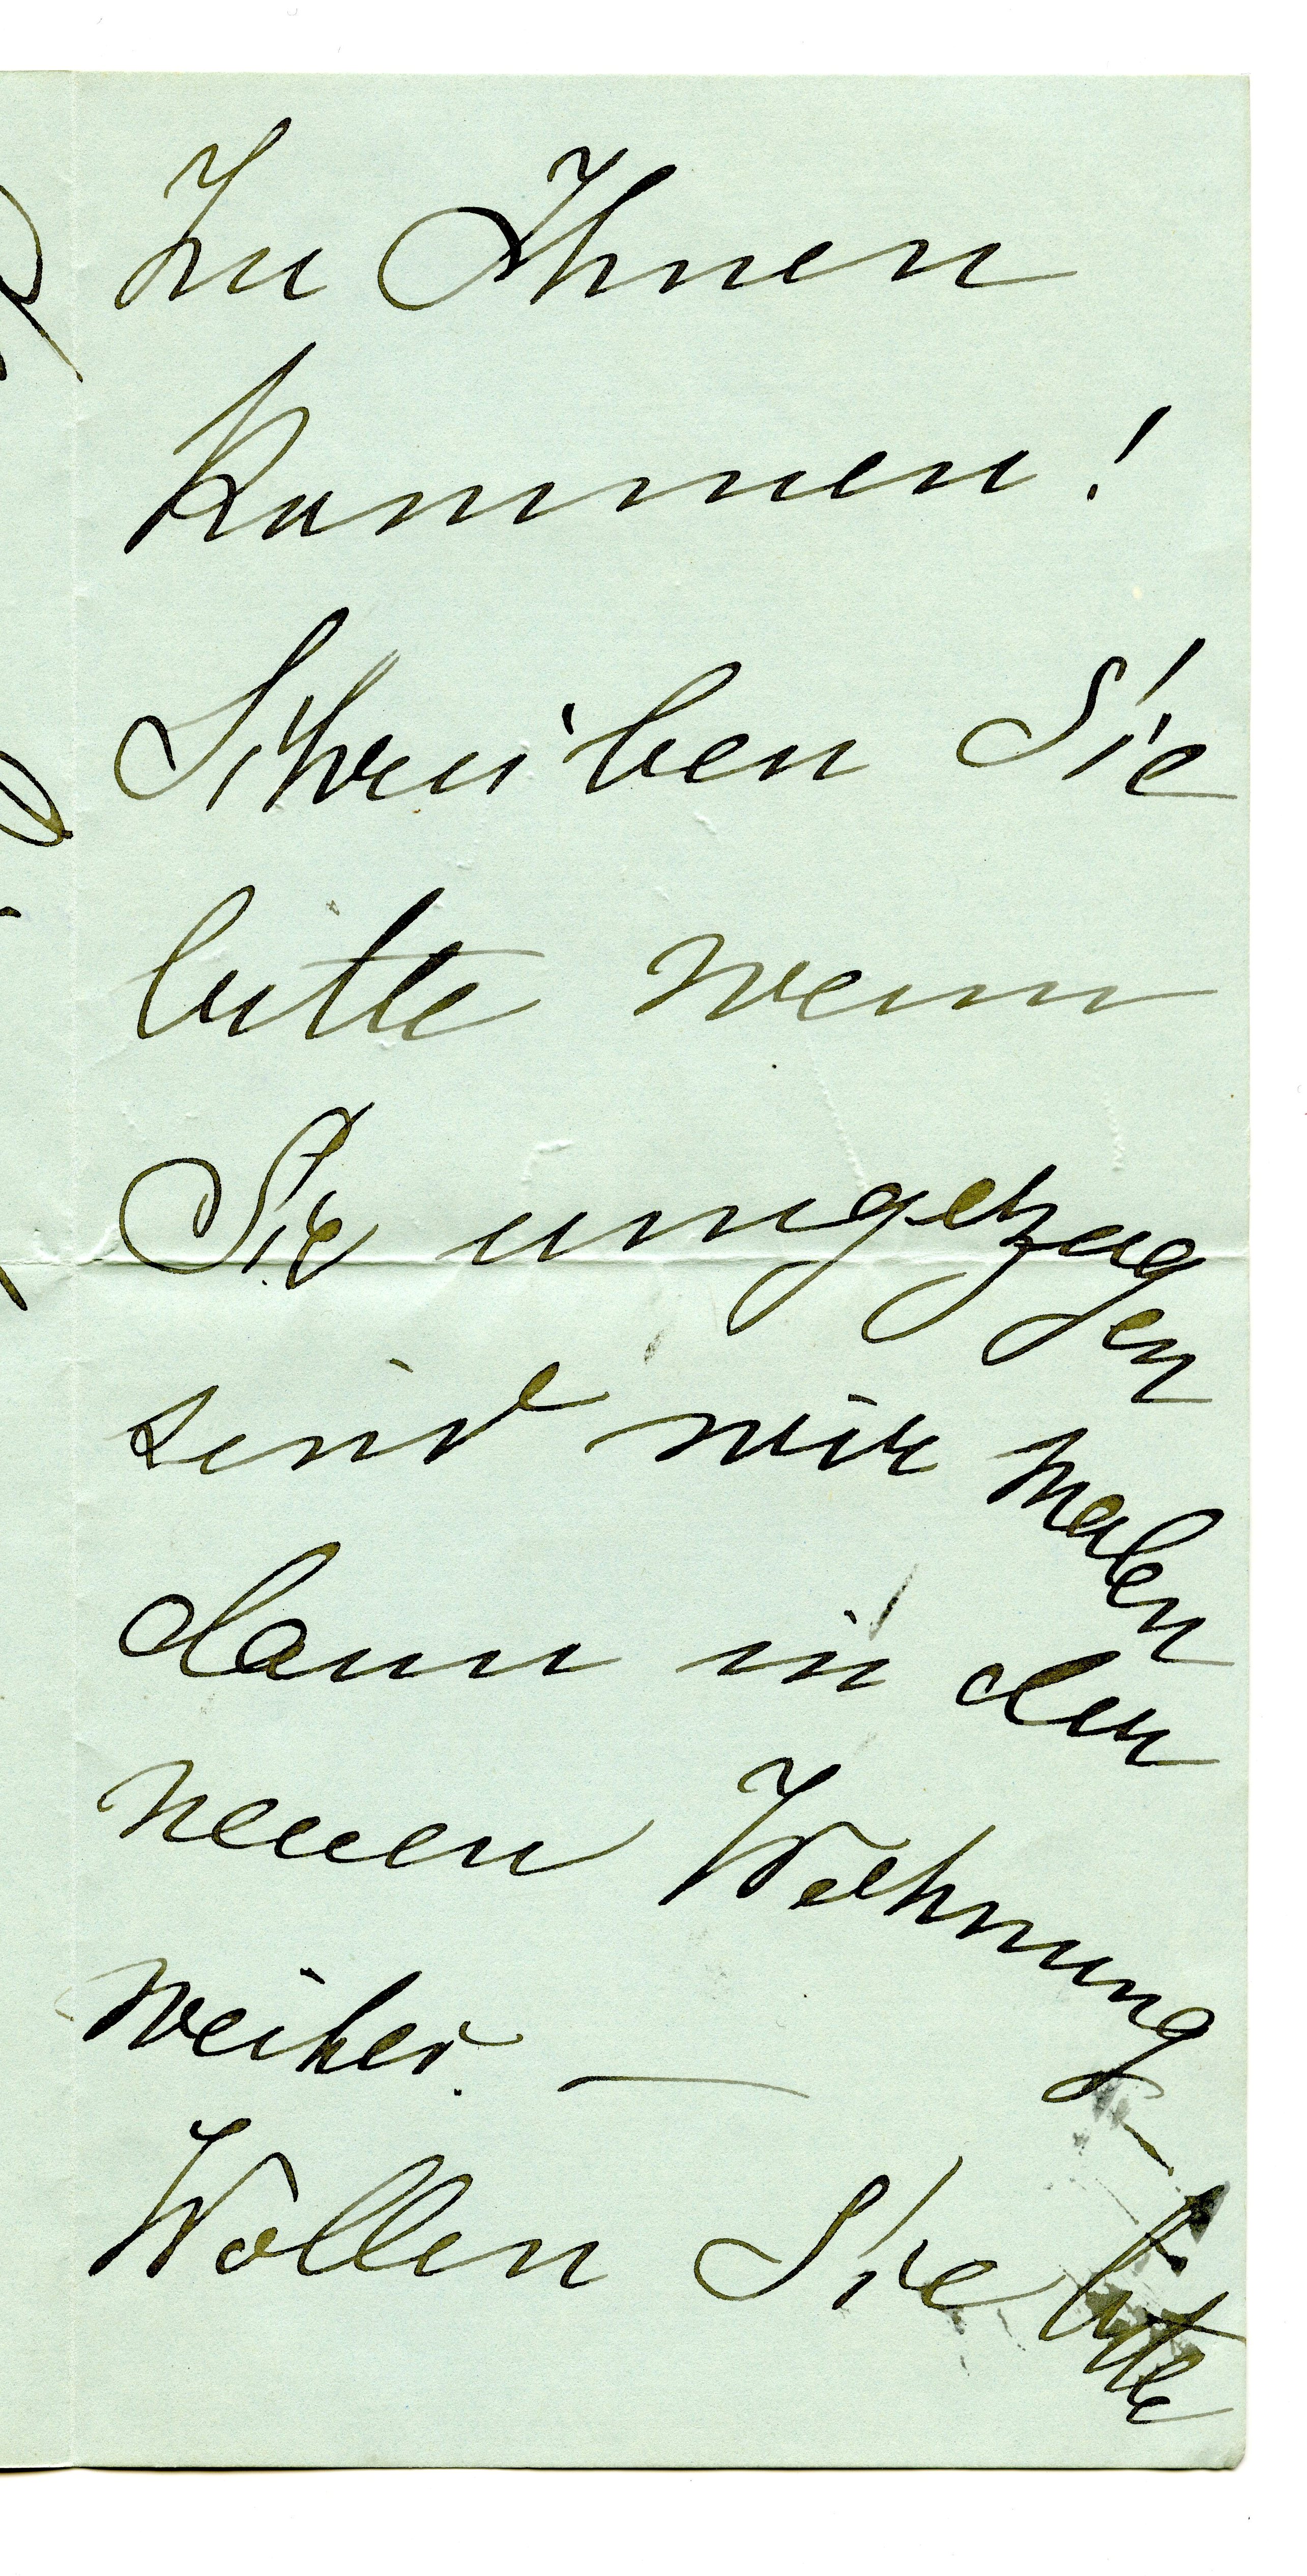 Zu Ihnen
kommen!
Schreiben Sie
bitte wenn
Sie umgezogen
sind wir malen
dann in der
neuen Wohnung
weiter. —
Wollen Sie bitte